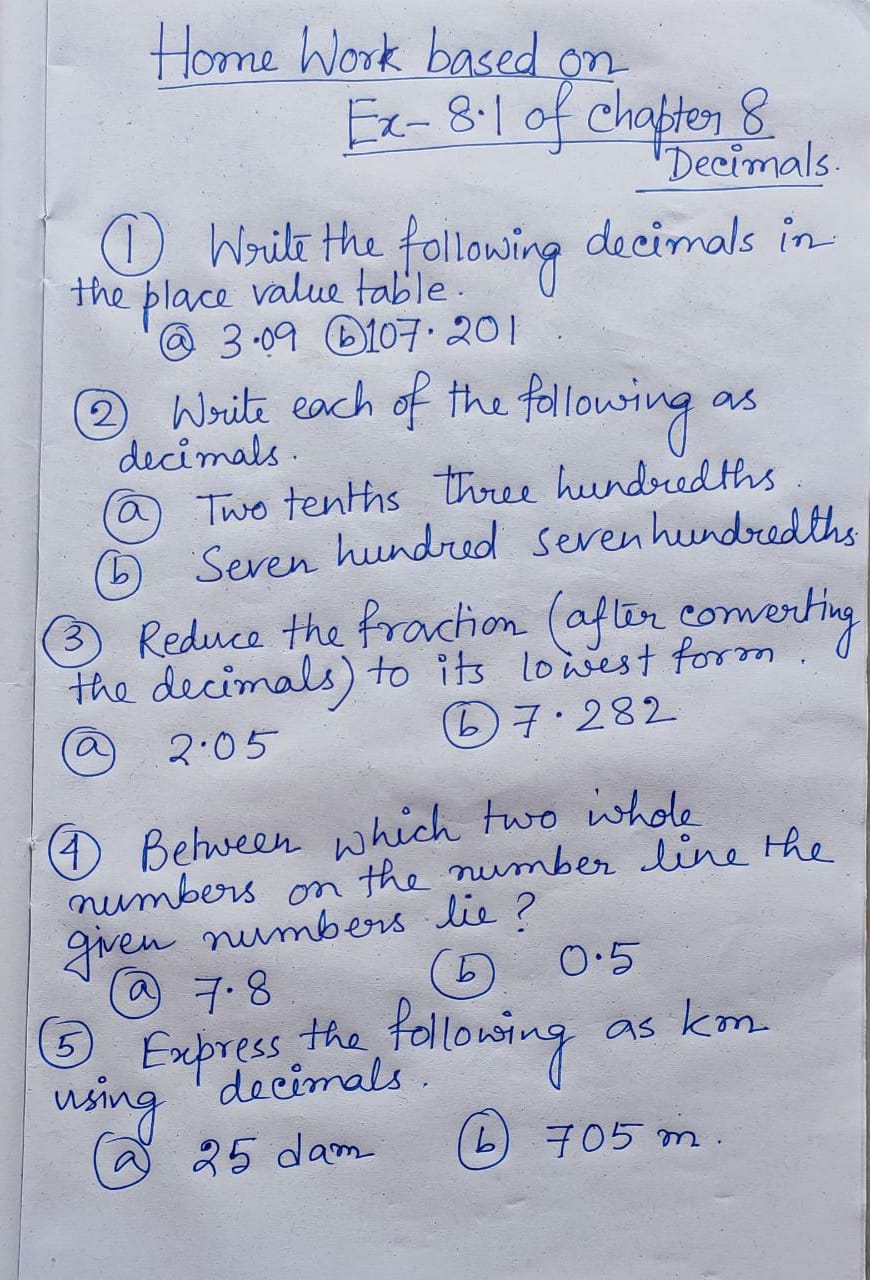 Home Work based on
Ex- 8.1 of chapter 8
Decimals.
① Write the following decimals in
the place value table.
ⓐ 3.09 ⓑ 107.201
② Write each of the following as
decimals.
ⓐ Two tenths three hundredths.
ⓑ Seven hundred seven hundredths
③ Reduce the fraction (after converting
the decimals) to its lowest form.
ⓐ 2.05 ⓑ 7.282
④ Between which two whole
numbers on the number line the
given numbers lie?
ⓐ 7.8 ⓑ 0.5
⑤ Express the following as km
using decimals.
ⓐ 25 dam ⓑ 705 m.